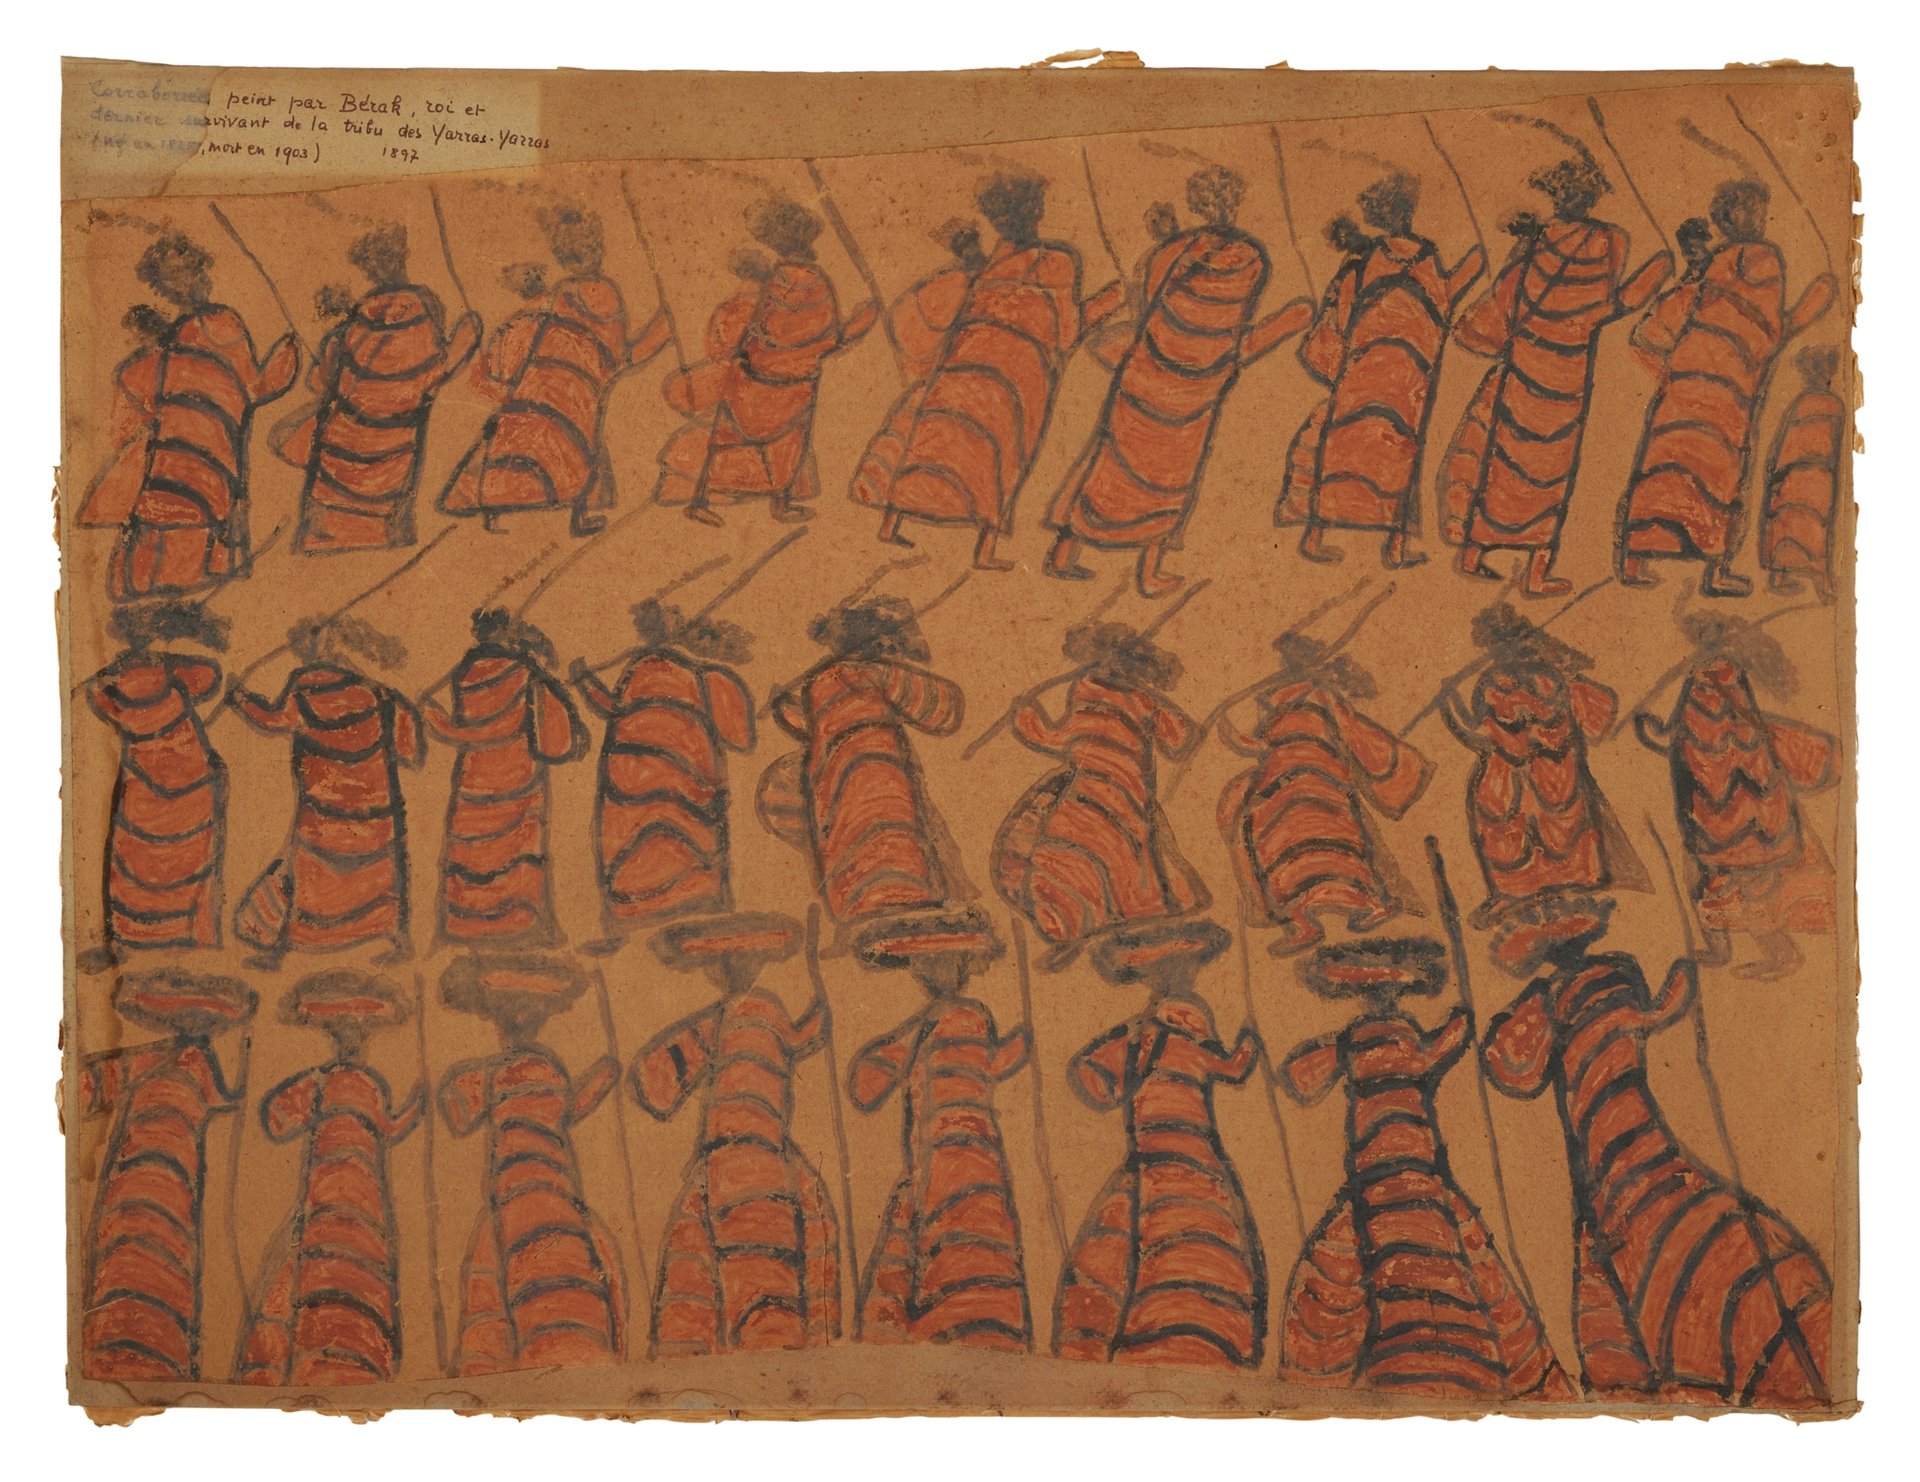 Corroborree peint par Bérak, roi et
dernier survivant de la tribu des Yarras-Yarras
, mort en 1903) 1897